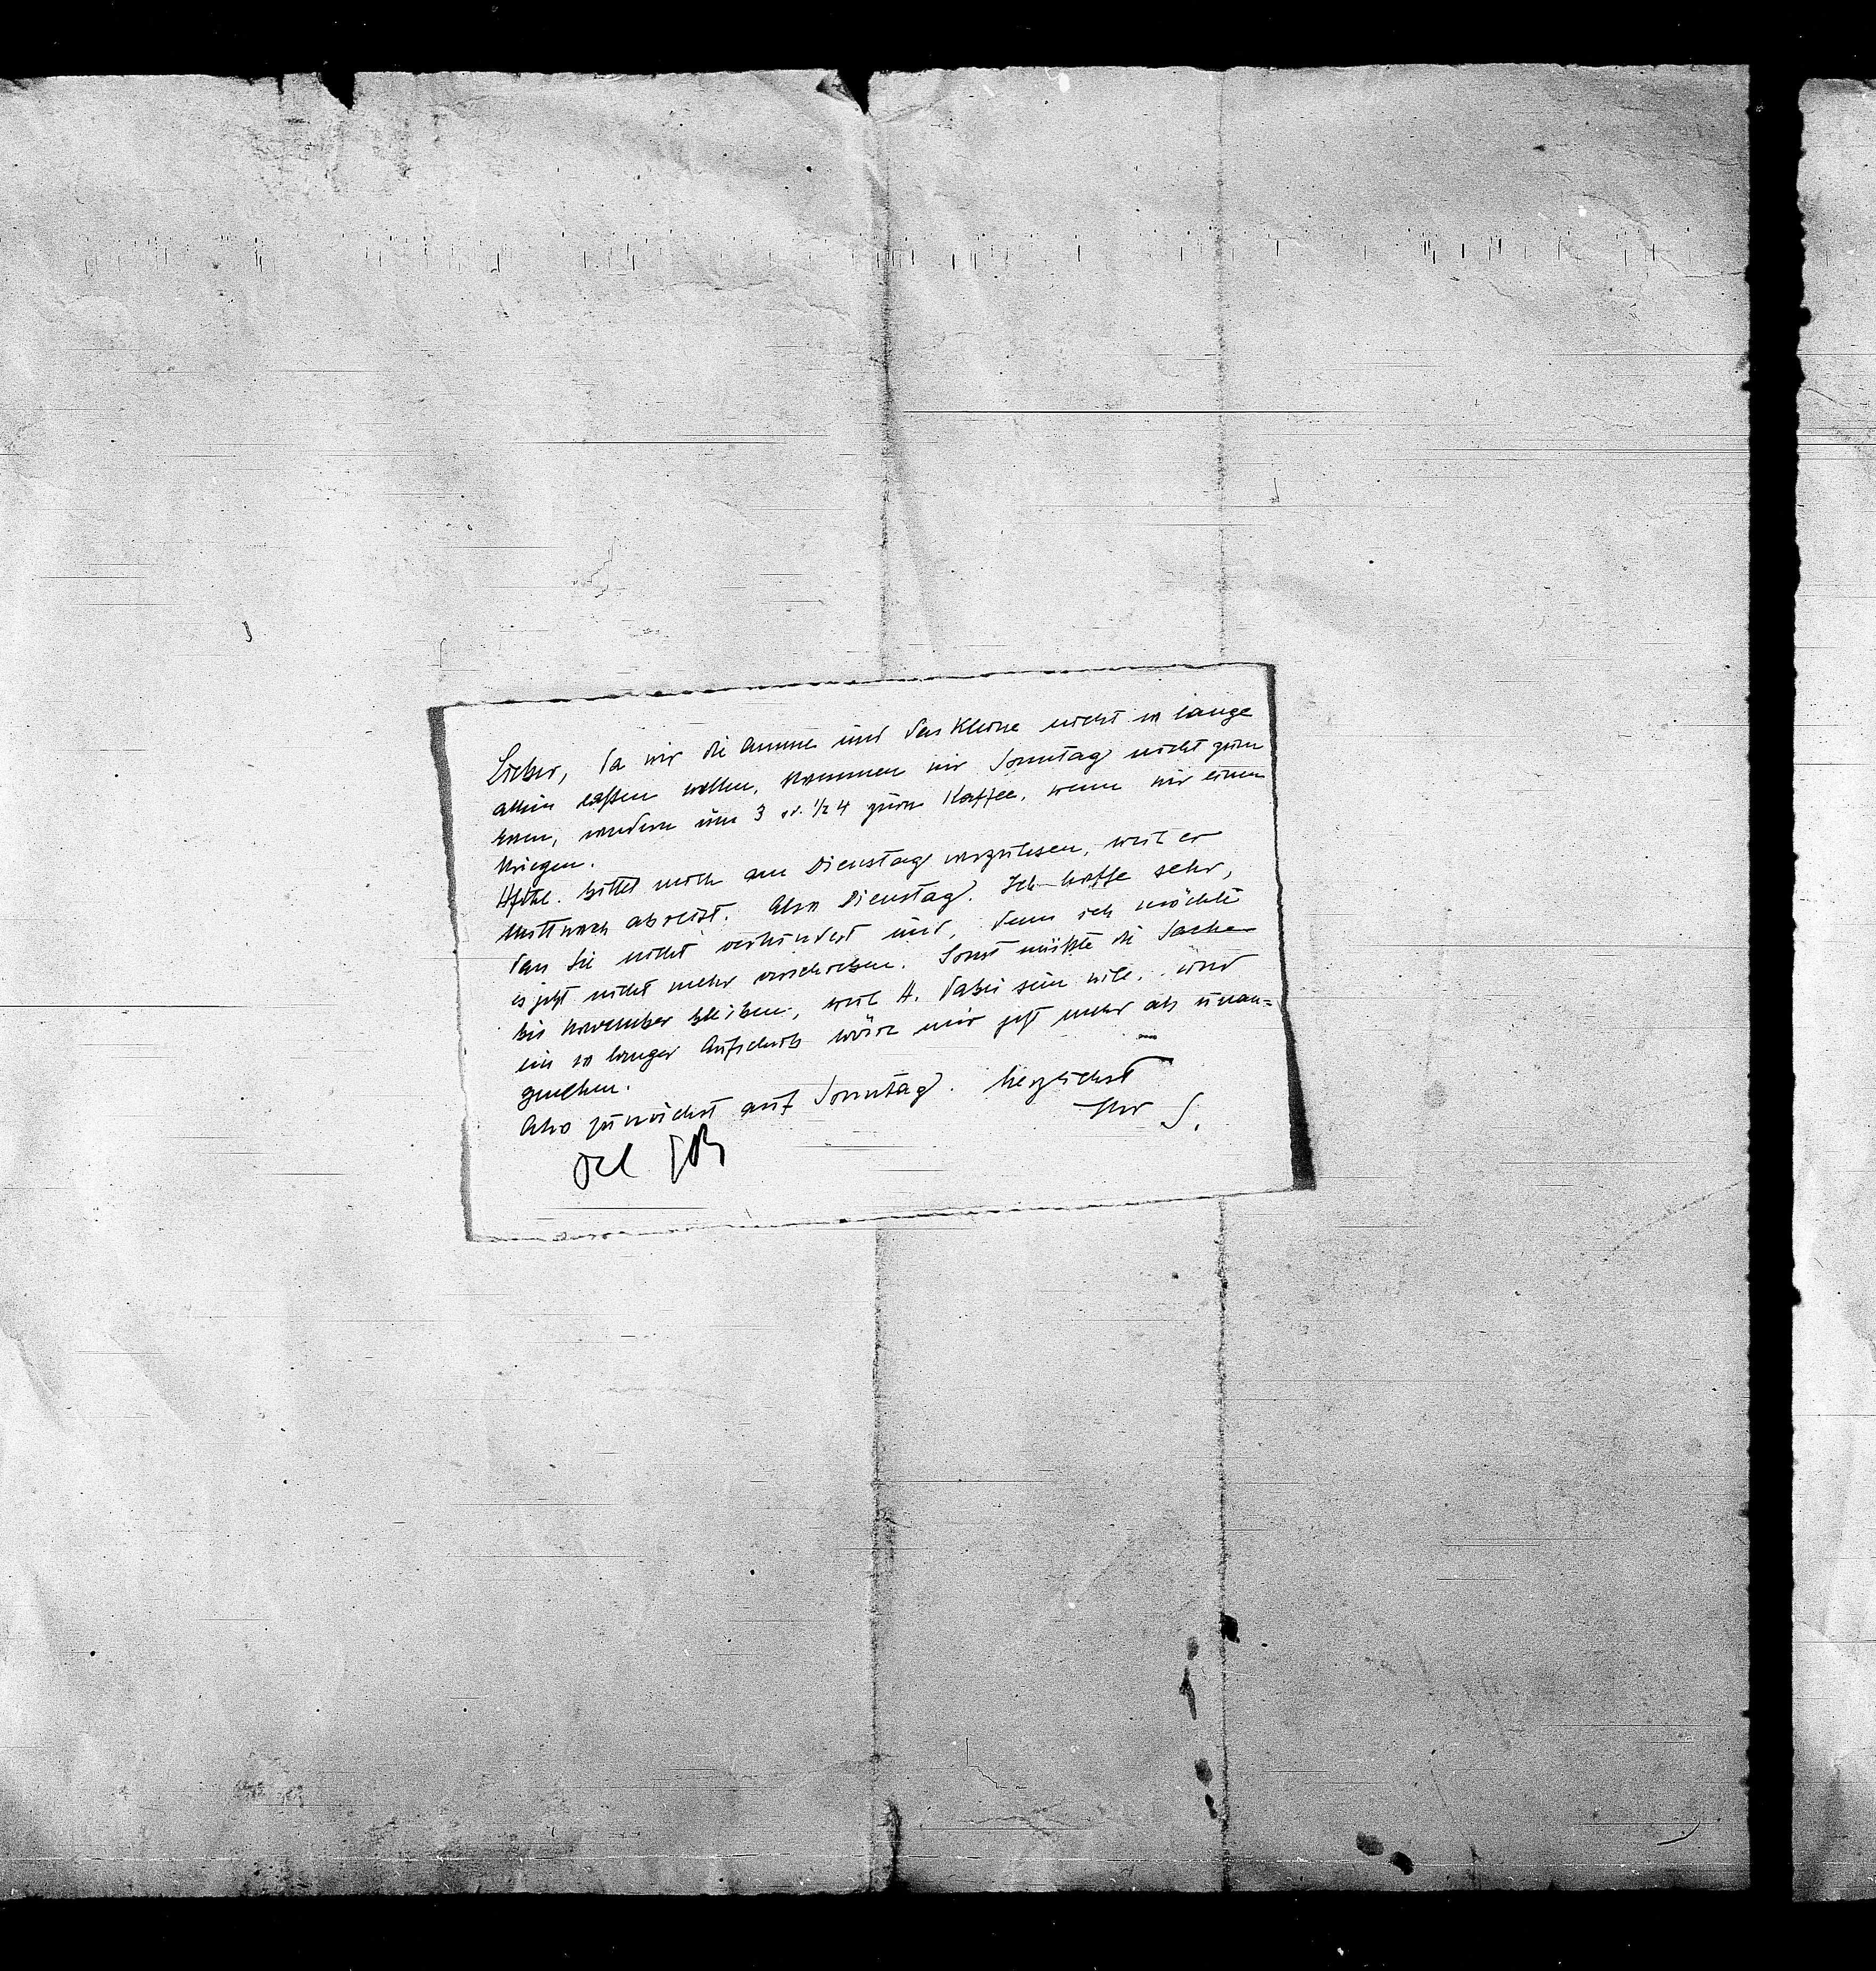 Lieber, da wir die Amme und das Kleine nicht so lange
allein laßen wollen, kommen wir Sonntag nicht zum
Essen, sondern um 3 od. ½ 4 zum Kaffee, wenn wir einen
kriegen.
Hfthl. bittet mich am Dienstag vorzulesen, weil er
Mittwoch abreist. Also Dienstag. Ich hoffe sehr,
das Sie nicht verhindert sind, denn ich möchte
es jetzt nicht mehr verschieben. Sonst müßte die Sache
bis November bleiben, weil H. dabei sein will, und
ein so langer Aufschub wäre mir jetzt mehr als unan=
genehm.
Also zunächst auf Sonntag. Herzlichst
Ihr S.